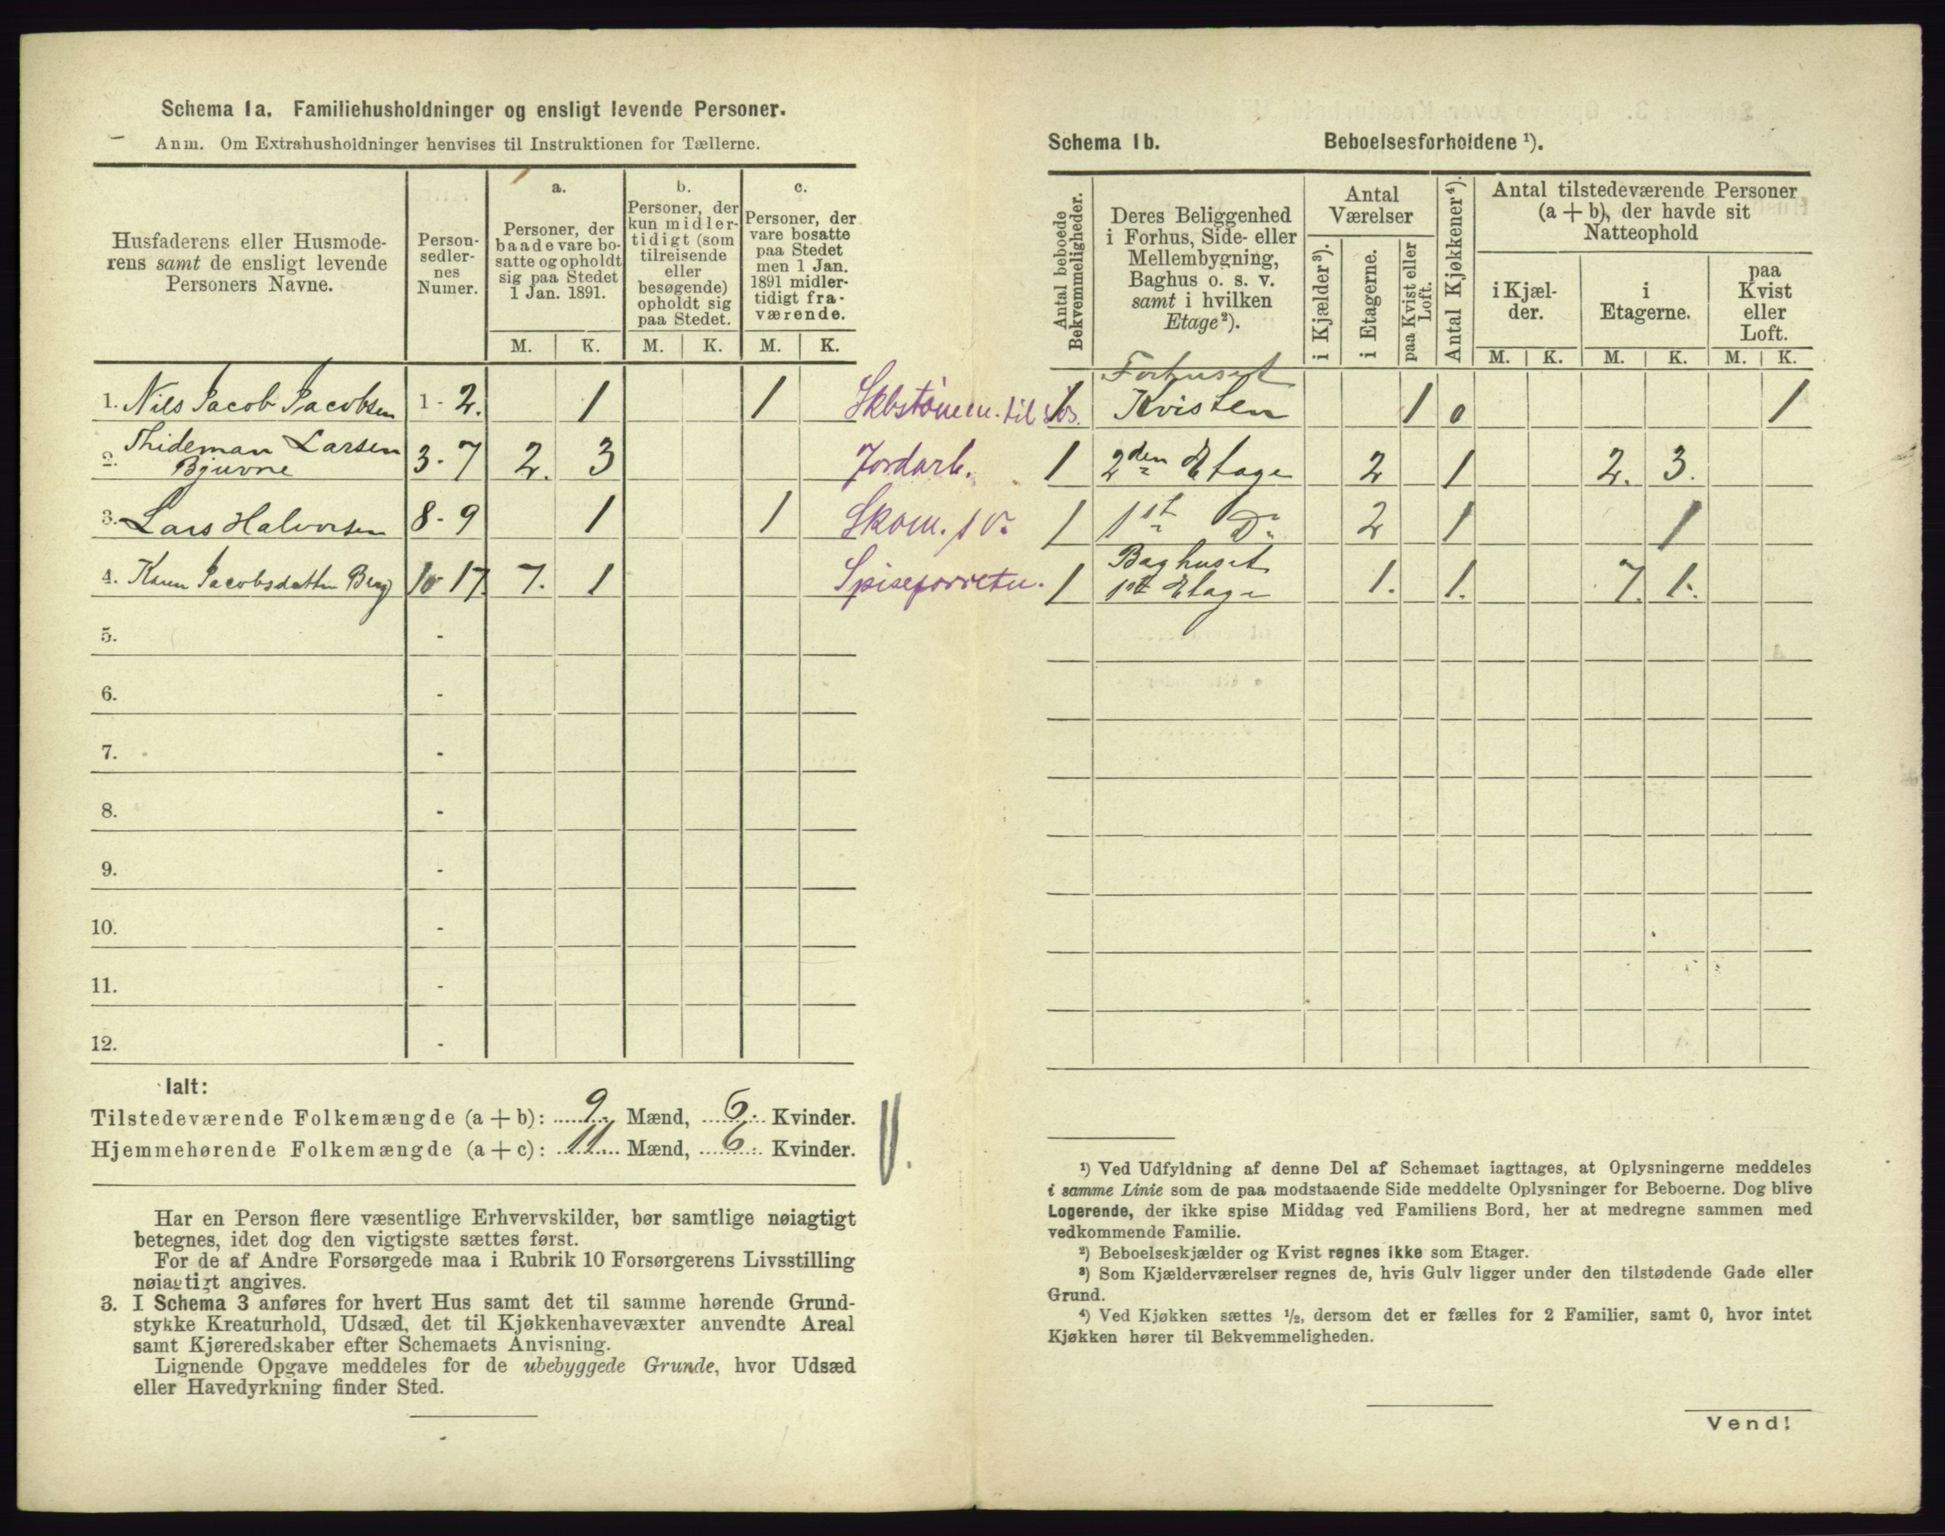 Schema 1a. Familiehusholdninger og ensligt levende Personer.
Anm. Om Extrahusholdninger henvises til Instruktionen for Tællerne.
Husfaderens eller Husmode-
rens samt de ensligt levende
Personers Navne.
Person-
sedler-
nes
Numer.
a.
Personer, der
baade vare bo-
satte og opholdt
sig paa Stedet
1 Jan. 1891.
b.
Personer, der
kun midler-
tidigt (som
tilreisende
eller
besøgende)
opholdt sig
paa Stedet.
c.
Personer, der
vare bosatte
paa Stedet
men 1 Jan.
1891 midler-
tidigt fra-
værende.
M. K. M. K. M. K.
1. Nils Jacob Jacobsen 1 - 2. 1 1 Skbstømm. til
2. Thideman Larsen
Bjuvne 3 - 7 2. 3 Jordarb.
3. Lars Halvorsen 8 - 9 1 1 Skom.
4. Karen Jacobsdatter Berg 10 - 17. 7. 1 Spiseforretn.
5. -
6. -
7. -
8. -
9. -
10. -
11. -
12. -
Ialt:
Tilstedeværende Folkemængde (a + b): 9. Mænd, 6. Kvinder.
Hjemmehørende Folkemængde (a + c): 11 Mænd, 6 Kvinder.
Har en Person flere væsentlige Erhvervskilder, bør samtlige nøiagtigt
betegnes, idet dog den vigtigste sættes først.
For de af Andre Forsørgede maa i Rubrik 10 Forsørgerens Livsstilling
nøiagtigt angives.
3. I Schema 3 anføres for hvert Hus samt det til samme hørende Grund-
stykke Kreaturhold, Udsæd, det til Kjøkkenhavevæxter anvendte Areal
samt Kjøreredskaber efter Schemaets Anvisning.
Lignende Opgave meddeles for de ubebyggede Grunde, hvor Udsæd
eller Havedyrkning finder Sted.
Schema 1b. Beboelsesforholdene ¹).
Antal beboede
Bekvemmeligheder.
Deres Beliggenhed
i Forhus, Side- eller
Mellembygning,
Baghus o. s. v.
samt i hvilken
Etage²).
Antal
Værelser
i Kjælder³).
i Etagerne.
paa Kvist eller
Loft.
Antal Kjøkkener⁴).
Antal tilstedeværende Personer
(a + b), der havde sit
Natteophold
i Kjæl-
der.
i
Etagerne.
paa
Kvist
eller
Loft.
M. K. M. K. M. K.
Forhuset
1 Kvisten 1 0 1
1 2den Etage 2 1 2. 3.
1 1st Do 2 1 1
Baghuset
1 1st Etage 1. 1. 7. 1.
¹) Ved Udfyldning af denne Del af Schemaet iagttages, at Oplysningerne meddeles
i samme Linie som de paa modstaaende Side meddelte Oplysninger for Beboerne. Dog blive
Logerende, der ikke spise Middag ved Familiens Bord, her at medregne sammen med
vedkommende Familie.
²) Beboelseskjælder og Kvist regnes ikke som Etager.
³) Som Kjælderværelser regnes de, hvis Gulv ligger under den tilstødende Gade eller
Grund.
⁴) Ved Kjøkken sættes ½, dersom det er fælles for 2 Familier, samt 0, hvor intet
Kjøkken hører til Bekvemmeligheden.
Vend!